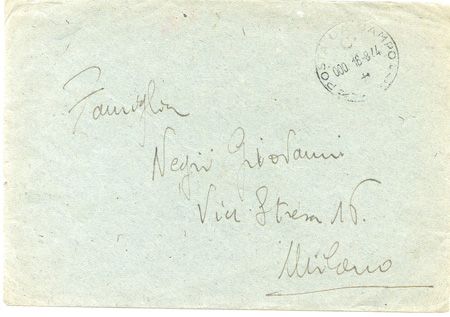 POSTA CAMPO
000 - 16-8-44
Famiglia
Negri Giovanni
Via Stresa 16.
Milano